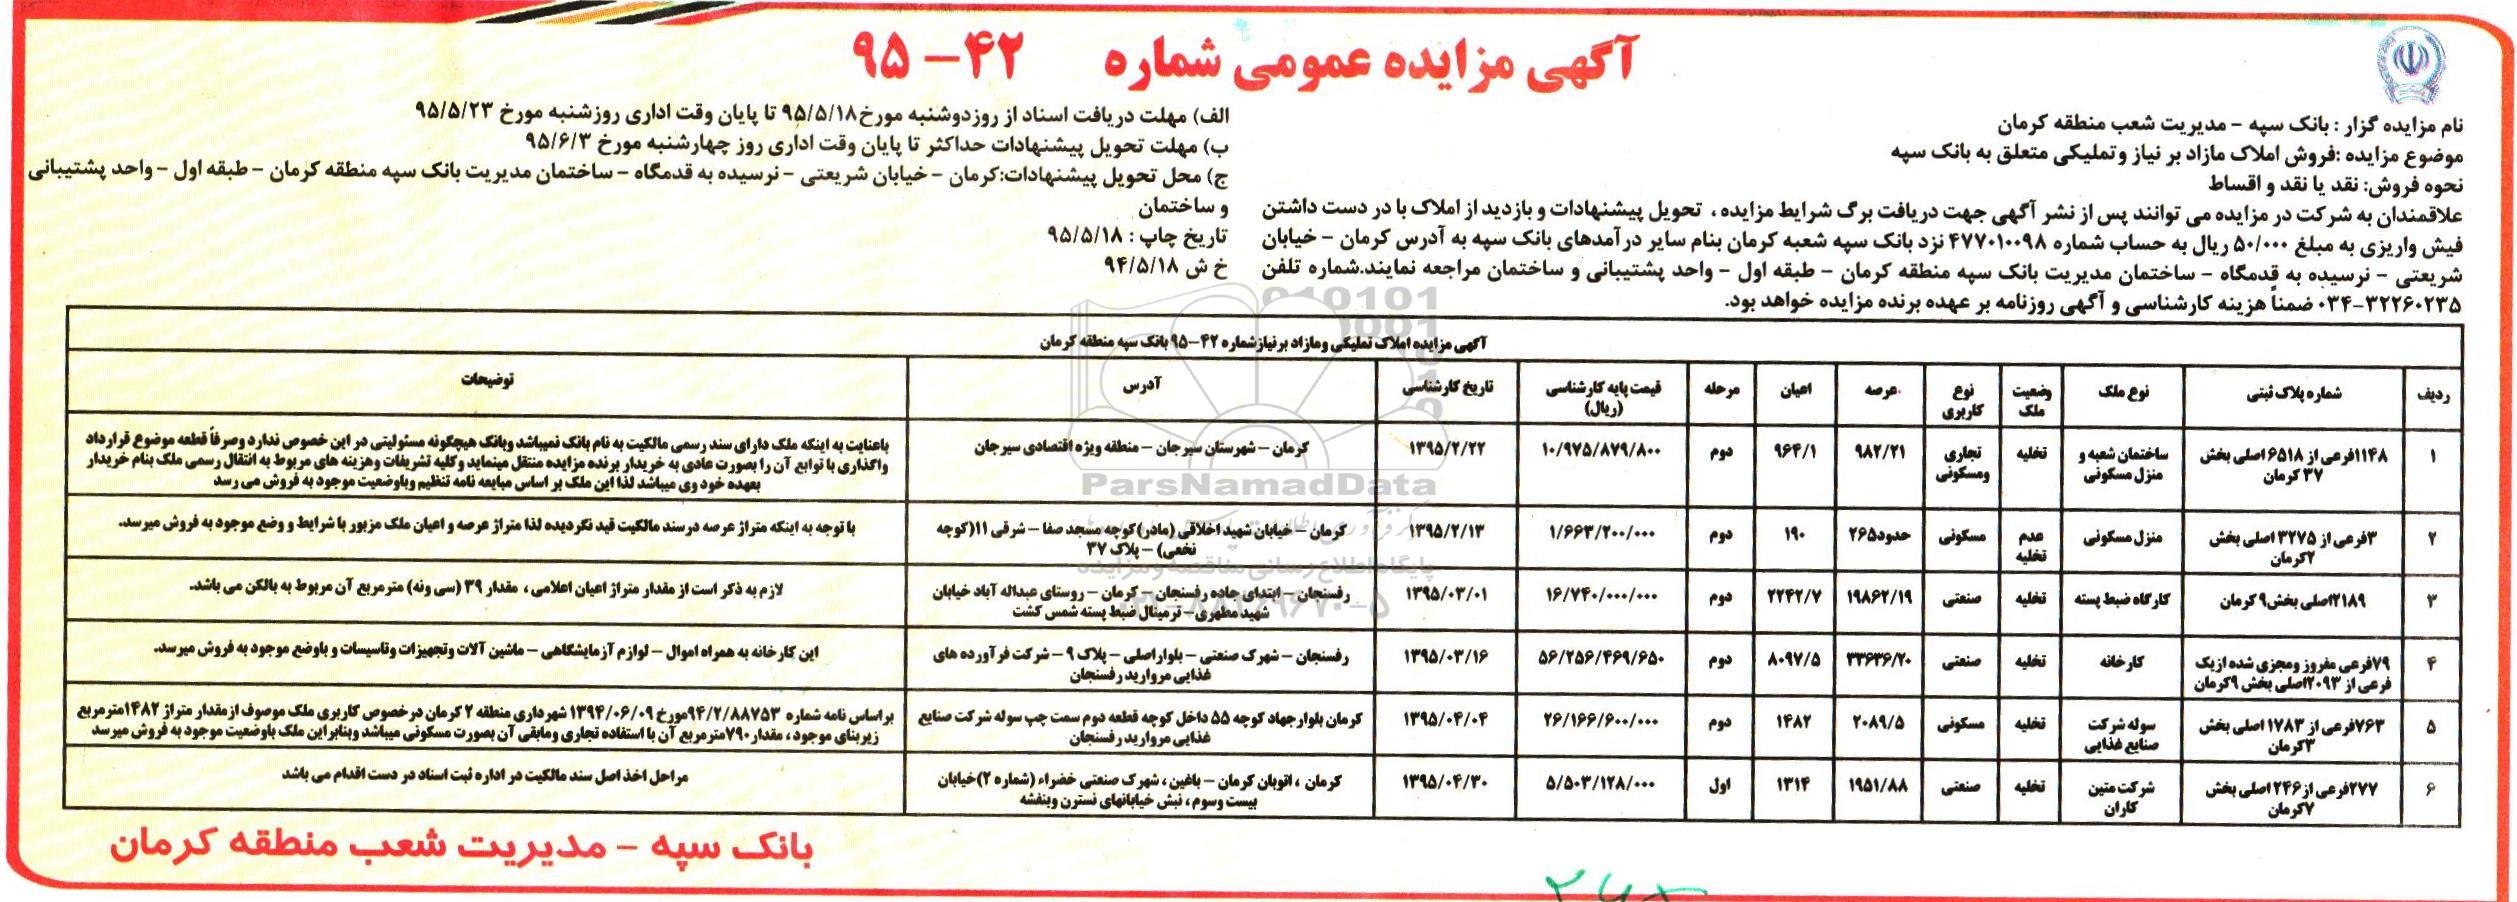 آگهی مزایده عمومی شماره ۴۲-۹۵
نام مزایده گزار : بانک سپه - مدیریت شعب منطقه کرمان
موضوع مزایده :فروش املاک مازاد بر نیاز وتملیکی متعلق به بانک سپه
نحوه فروش: نقد یا نقد و اقساط
علاقمندان به شرکت در مزایده می توانند پس از نشر آگهی جهت دریافت برگ شرایط مزایده ، تحویل پیشنهادات و بازدید از املاک با در دست داشتن
فیش واریزی به مبلغ ۵۰/۰۰۰ ریال به حساب شماره ۴۷۷۰۱۰۰۹۸ نزد بانک سپه شعبه کرمان بنام سایر درآمدهای بانک سپه به آدرس کرمان - خیابان
شریعتی - نرسیده به قدمگاه - ساختمان مدیریت بانک سپه منطقه کرمان - طبقه اول - واحد پشتیبانی و ساختمان مراجعه نمایند.شماره تلفن
۰۳۴-۳۲۲۶۰۲۳۵ ضمناً هزینه کارشناسی و آگهی روزنامه بر عهده برنده مزایده خواهد بود.
الف) مهلت دریافت اسناد از روزدوشنبه مورخ۹۵/۵/۱۸ تا پایان وقت اداری روزشنبه مورخ ۹۵/۵/۲۳
ب) مهلت تحویل پیشنهادات حداکثر تا پایان وقت اداری روز چهارشنبه مورخ ۹۵/۶/۳
ج) محل تحویل پیشنهادات:کرمان - خیابان شریعتی - نرسیده به قدمگاه - ساختمان مدیریت بانک سپه منطقه کرمان - طبقه اول - واحد پشتیبانی
و ساختمان
تاریخ چاپ : ۹۵/۵/۱۸
خ ش ۹۴/۵/۱۸
آگهی مزایده املاک تملیکی ومازاد برنیازشماره ۴۲-۹۵ بانک سپه منطقه کرمان
ردیف شماره پلاک ثبتی نوع ملک وضعیت ملک نوع کاربری عرصه اعیان مرحله قیمت پایه کارشناسی (ریال) تاریخ کارشناسی آدرس توضیحات
۱ ۱۱۴۸فرعی از ۶۵۱۸ اصلی بخش ۳۷ کرمان ساختمان شعبه و منزل مسکونی تخلیه تجاری ومسکونی ۹۸۲/۲۱ ۹۶۴/۱ دوم ۱۰/۹۷۵/۸۷۹/۸۰۰ ۱۳۹۵/۲/۲۲ کرمان - شهرستان سیرجان - منطقه ویژه اقتصادی سیرجان باعنایت به اینکه ملک دارای سند رسمی مالکیت به نام بانک نمیباشد وبانک هیچگونه مسئولیتی در این خصوص ندارد وصرفاً قطعه موضوع قرارداد واگذاری با توابع آن را بصورت عادی به خریدار برنده مزایده منتقل مینماید وکلیه تشریفات وهزینه های مربوط به انتقال رسمی ملک بنام خریدار بعهده خود وی میباشد لذا این ملک بر اساس مبایعه نامه تنظیم وباوضعیت موجود به فروش می رسد
۲ ۳فرعی از ۳۲۷۵ اصلی بخش ۲کرمان منزل مسکونی عدم تخلیه مسکونی حدود۲۶۵ ۱۹۰ دوم ۱/۶۶۳/۲۰۰/۰۰۰ ۱۳۹۵/۲/۱۳ کرمان - خیابان شهید اخلاقی (مادر)کوچه مسجد صفا - شرقی ۱۱(کوچه نخعی) - پلاک ۳۷ با توجه به اینکه متراژ عرصه درسند مالکیت قید نگردیده لذا متراژ عرصه و اعیان ملک مزبور با شرایط و وضع موجود به فروش میرسد.
۳ ۲۱۸۹اصلی بخش۹ کرمان کارگاه ضبط پسته تخلیه صنعتی ۱۹۸۶۲/۱۹ ۲۲۴۲/۷ دوم ۱۶/۷۴۰/۰۰۰/۰۰۰ ۱۳۹۵/۰۳/۰۱ رفسنجان - ابتدای جاده رفسنجان - کرمان - روستای عبداله آباد خیابان شهید مطهری - ترمینال ضبط پسته شمس کشت لازم به ذکر است از مقدار متراژ اعیان اعلامی ، مقدار ۳۹ (سی ونه) مترمربع آن مربوط به بالکن می باشد.
۴ ۷۹فرعی مفروز ومجزی شده ازیک فرعی از ۲۰۹۳اصلی بخش ۹کرمان کارخانه تخلیه صنعتی ۳۳۶۳۶/۲۰ ۸۰۹۷/۵ دوم ۵۶/۲۵۶/۴۶۹/۶۵۰ ۱۳۹۵/۰۳/۱۶ رفسنجان - شهرک صنعتی - بلواراصلی - پلاک ۹ - شرکت فرآورده های غذایی مروارید رفسنجان این کارخانه به همراه اموال - لوازم آزمایشگاهی - ماشین آلات وتجهیزات وتاسیسات و باوضع موجود به فروش میرسد.
۵ ۷۶۳فرعی از ۱۷۸۳ اصلی بخش ۳کرمان سوله شرکت صنایع غذایی تخلیه مسکونی ۲۰۸۹/۵ ۱۴۸۲ دوم ۲۶/۱۶۶/۶۰۰/۰۰۰ ۱۳۹۵/۰۴/۰۴ کرمان بلوارجهاد کوچه ۵۵ داخل کوچه قطعه دوم سمت چپ سوله شرکت صنایع غذایی مروارید رفسنجان براساس نامه شماره ۹۴/۲/۸۸۷۵۳مورخ ۱۳۹۴/۰۶/۰۹ شهرداری منطقه ۲ کرمان درخصوص کاربری ملک موصوف ازمقدار متراژ ۱۴۸۲مترمربع زیربنای موجود ، مقدار۷۹۰مترمربع آن با استفاده تجاری ومابقی آن بصورت مسکونی میباشد وبنابراین ملک باوضعیت موجود به فروش میرسد
۶ ۲۷۷فرعی از۲۴۶ اصلی بخش ۷کرمان شرکت متین کاران تخلیه صنعتی ۱۹۵۱/۸۸ ۱۳۱۴ اول ۵/۵۰۳/۱۲۸/۰۰۰ ۱۳۹۵/۰۴/۳۰ کرمان ، اتوبان کرمان - باغین ، شهرک صنعتی خضراء (شماره ۲)خیابان بیست وسوم ، نبش خیابانهای نسترن وبنفشه مراحل اخذ اصل سند مالکیت در اداره ثبت اسناد در دست اقدام می باشد
ParsNamadData
پایگاه اطلاع رسانی مناقصه ومزایده
بانک سپه - مدیریت شعب منطقه کرمان